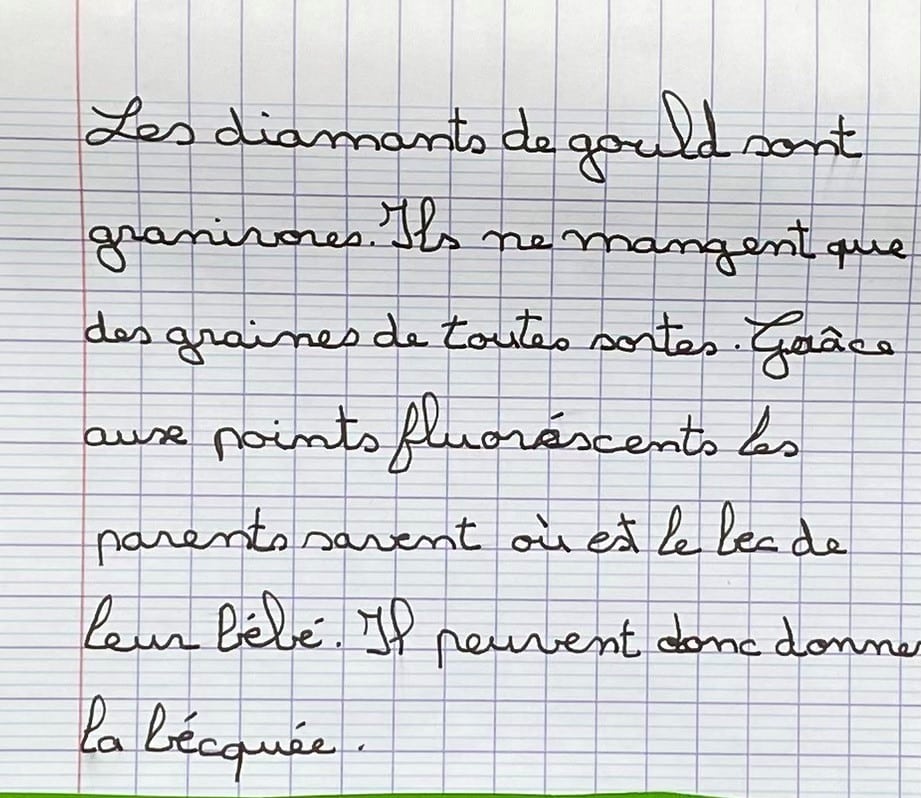 Les diamants de gould sont
granivores. Ils ne mangent que
des graines de toutes sortes. Grâce
aux points fluoréscents les
parents savent où est le bec de
leur bébé. Il peuvent donc donne
la bécquée.